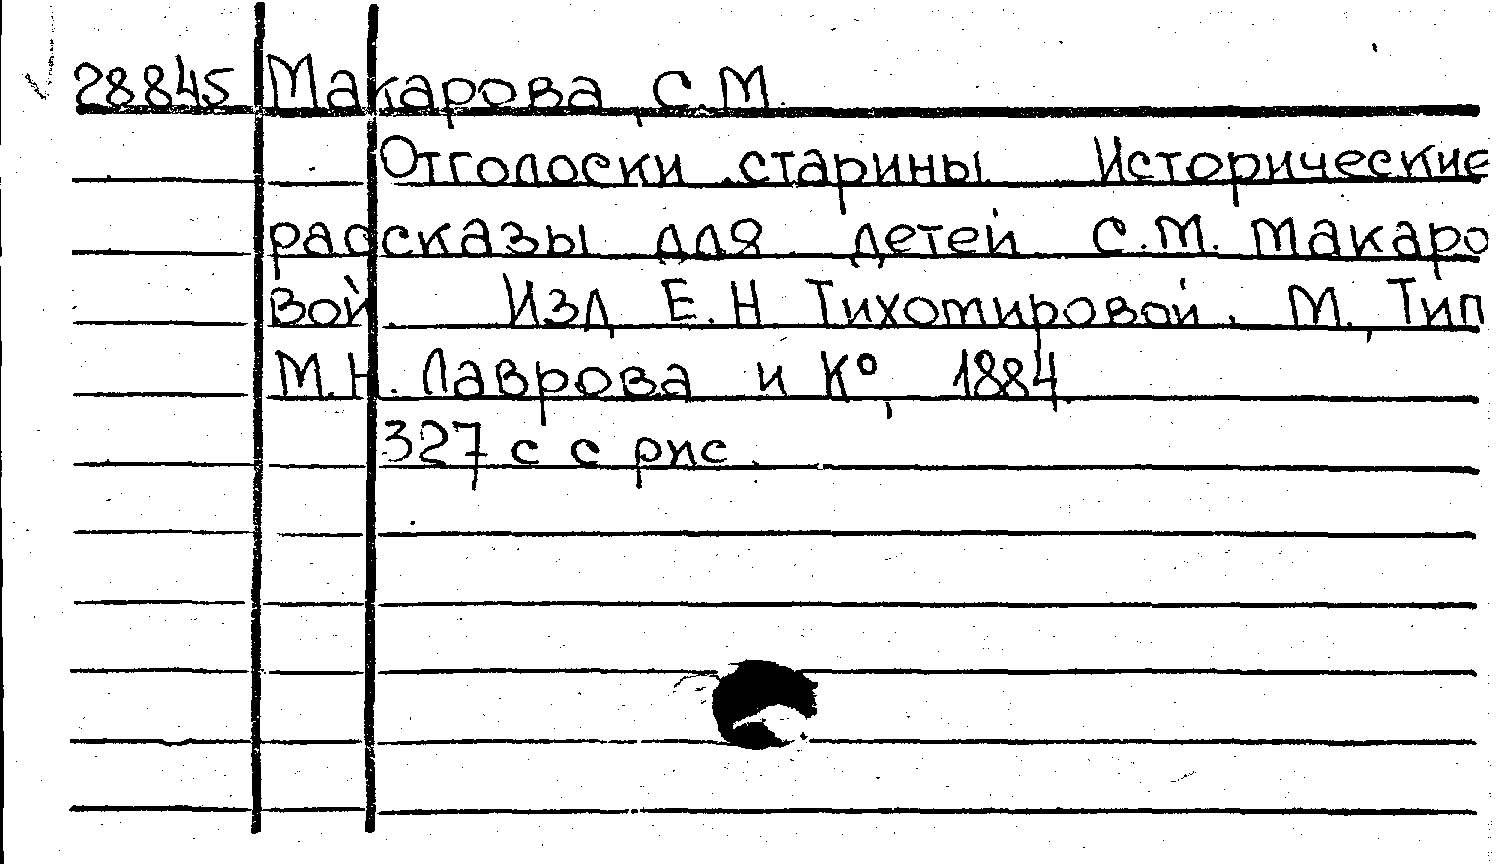 28845 Макарова, С.М.
Отголоски старины. Исторические
рассказы для детей С.М. Макаро
вой. Изд. Е.Н. Тихомировой. М., Тип.
М.Н. Лаврова и К°, 1884.
327 с. с рис.